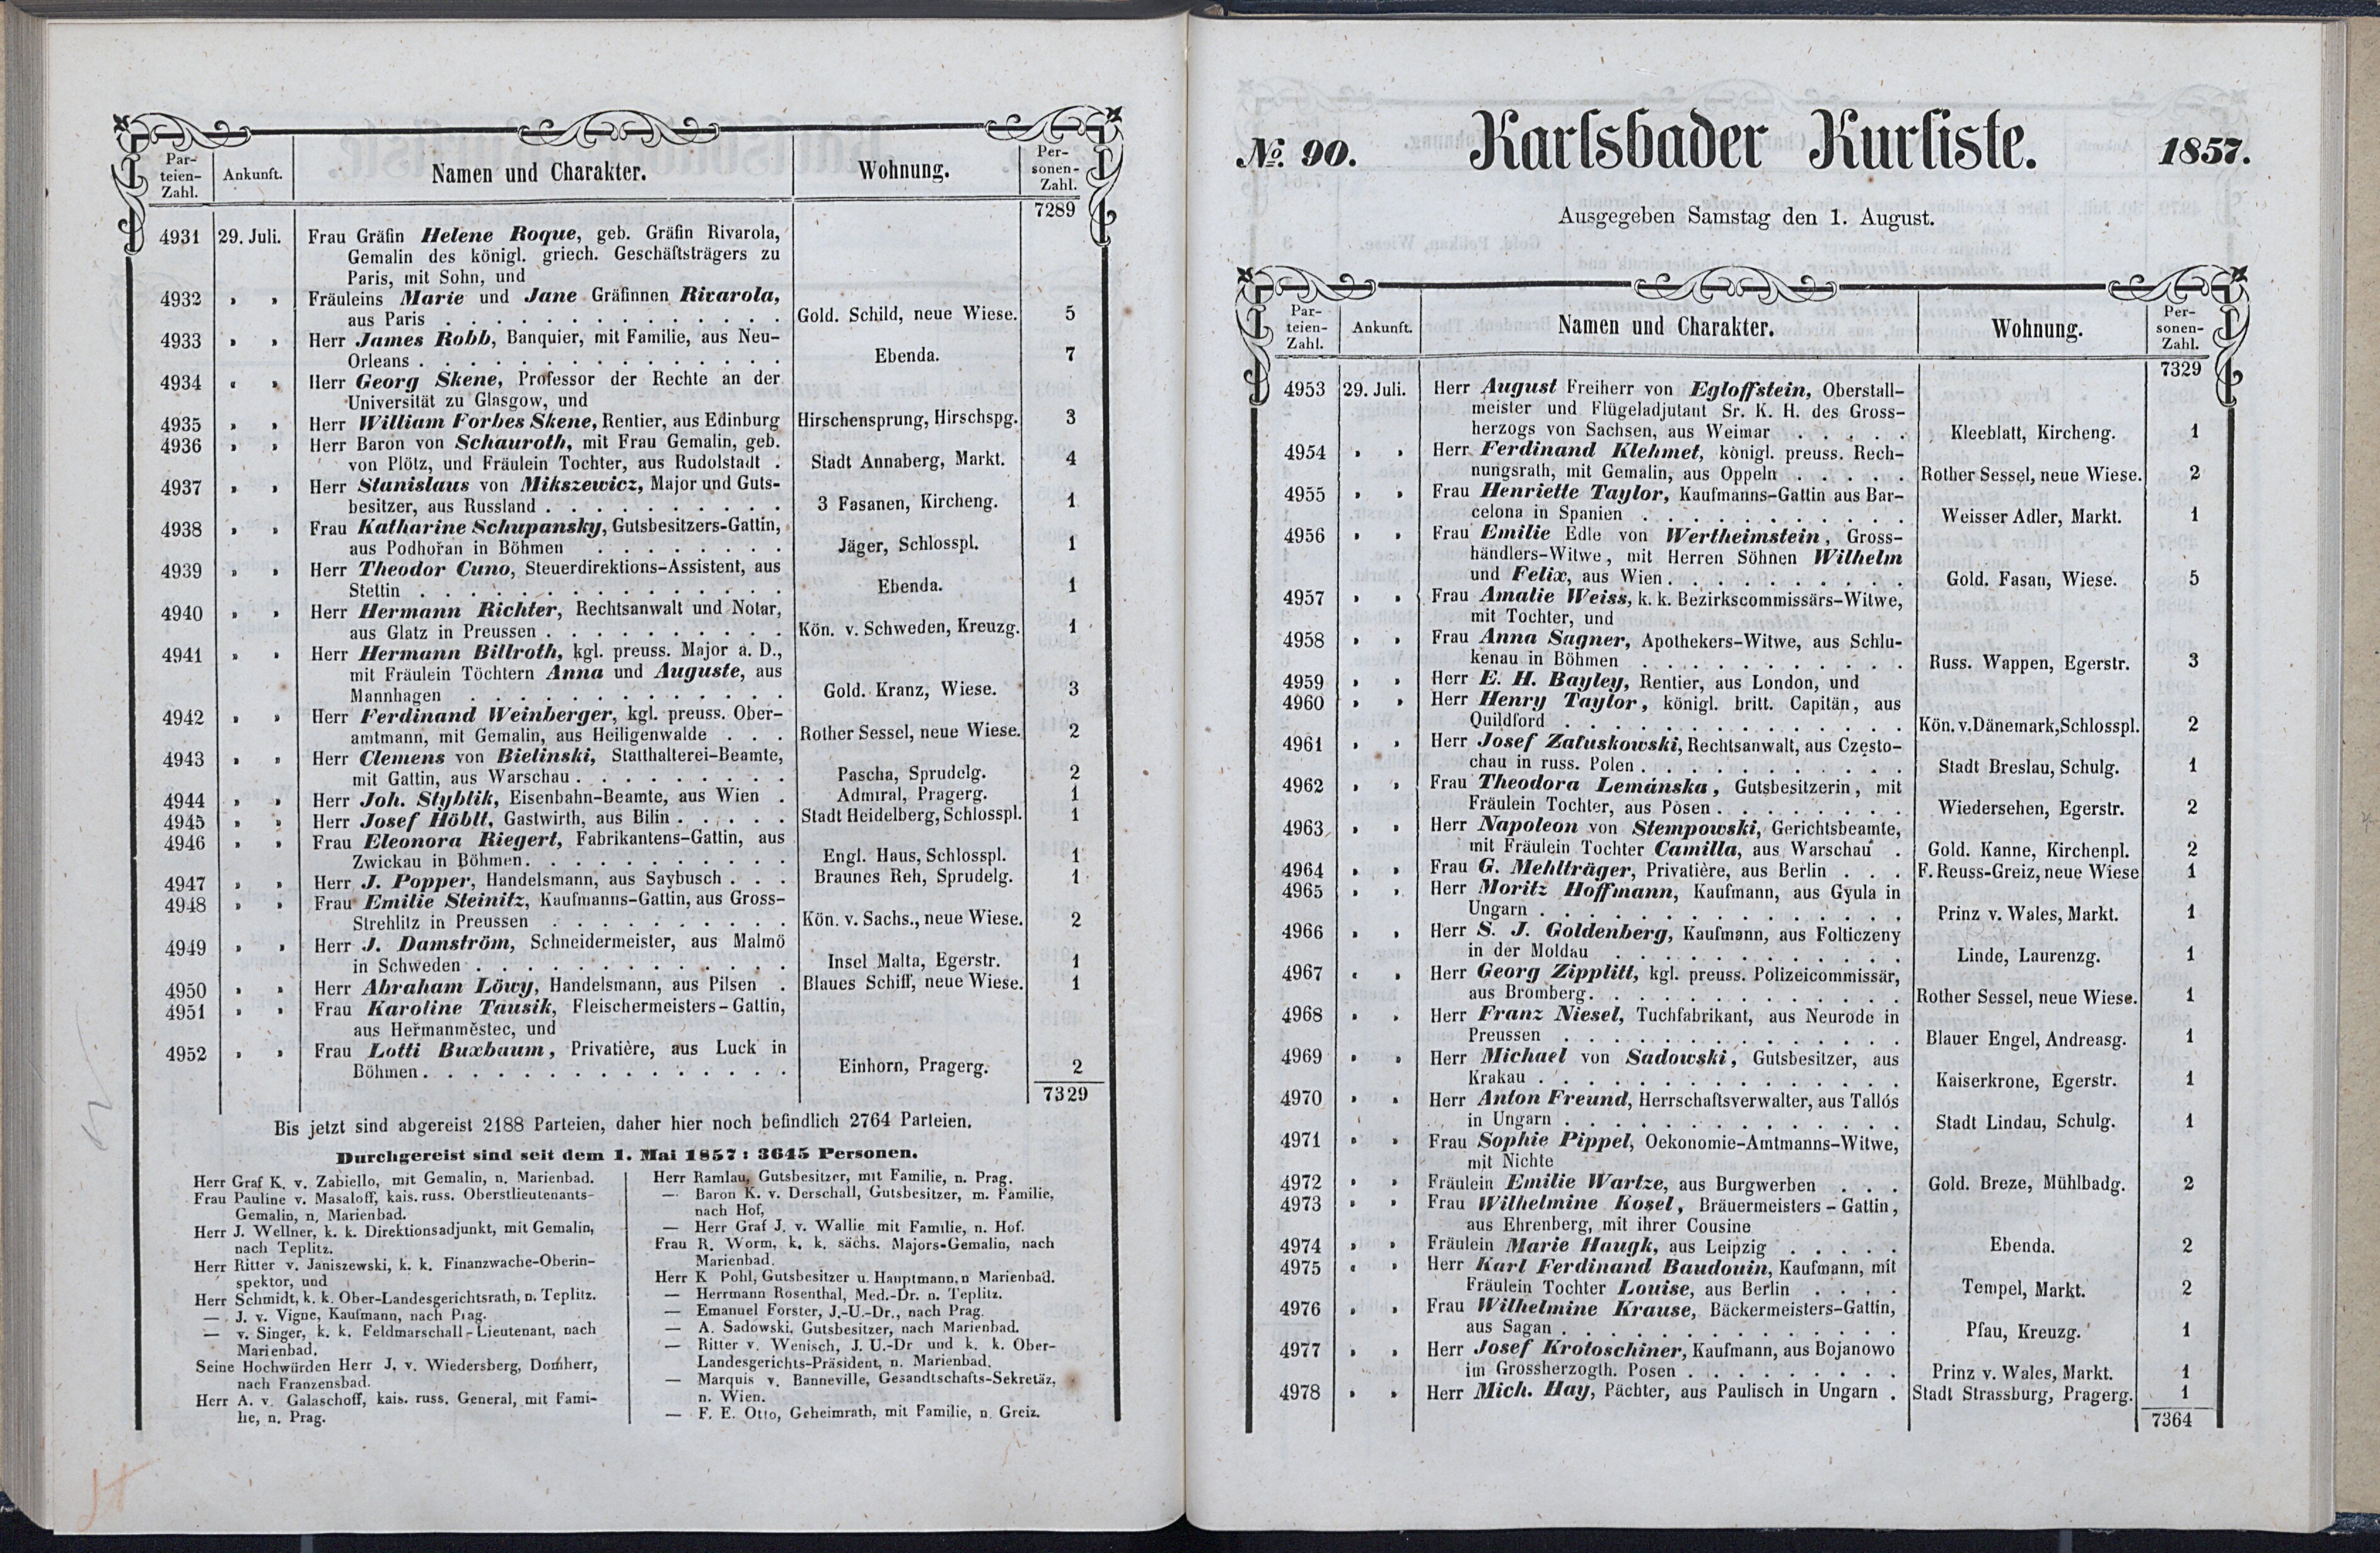 Par-
teien-
Zahl.
Ankunft.
Namen und Charakter.
Wohnung.
Per-
sonen-
Zahl.
7289
4931 29. Juli. Frau Gräfin Helene Roque, geb. Gräfin Rivarola,
Gemalin des königl. griech. Geschäftsträgers zu
Paris, mit Sohn, und
4932 » » Fräuleins Marie und Jane Gräfinnen Rivarola,
aus Paris . . . . . . . . . . . . . Gold. Schild, neue Wiese. 5
4933 » » Herr James Robb, Banquier, mit Familie, aus Neu-
Orleans . . . . . . . . . . . . . Ebenda. 7
4934 « » Herr Georg Skene, Professor der Rechte an der
Universität zu Glasgow, und
4935 » » Herr William Forbes Skene, Rentier, aus Edinburg Hirschensprung, Hirschspg. 3
4936 » » Herr Baron von Schauroth, mit Frau Gemalin, geb.
von Plötz, und Fräulein Tochter, aus Rudolstadt . Stadt Annaberg, Markt. 4
4937 » » Herr Stanislaus von Mikszewicz, Major und Guts-
besitzer, aus Russland . . . . . . . . . . 3 Fasanen, Kircheng. 1
4938 » » Frau Katharine Schupansky, Gutsbesitzers-Gattin,
aus Podhořan in Böhmen . . . . . . . . Jäger, Schlosspl. 1
4939 » » Herr Theodor Cuno, Steuerdirektions-Assistent, aus
Stettin . . . . . . . . . . . . . Ebenda. 1
4940 » » Herr Hermann Richter, Rechtsanwalt und Notar,
aus Glatz in Preussen . . . . . . . . . . Kön. v. Schweden, Kreuzg. 1
4941 » » Herr Hermann Billroth, kgl. preuss. Major a. D.,
mit Fräulein Töchtern Anna und Auguste, aus
Mannhagen . . . . . . . . . . . . Gold. Kranz, Wiese. 3
4942 » » Herr Ferdinand Weinberger, kgl. preuss. Ober-
amtmann, mit Gemalin, aus Heiligenwalde . . . Rother Sessel, neue Wiese. 2
4943 » » Herr Clemens von Bielinski, Statthalterei-Beamte,
mit Gattin, aus Warschau . . . . . . . . . Pascha, Sprudelg. 2
4944 » » Herr Joh. Styblik, Eisenbahn-Beamte, aus Wien . Admiral, Pragerg. 1
4945 » » Herr Josef Höblt, Gastwirth, aus Bilin . . . . . Stadt Heidelberg, Schlosspl. 1
4946 » » Frau Eleonora Riegert, Fabrikantens-Gattin, aus
Zwickau in Böhmen. . . . . . . . . . . Engl. Haus, Schlosspl. 1
4947 » » Herr J. Popper, Handelsmann, aus Saybusch . . . Braunes Reh, Sprudelg. 1
4948 » » Frau Emilie Steinitz, Kaufmanns-Gattin, aus Gross-
Strehlitz in Preussen . . . . . . . . . . Kön. v. Sachs., neue Wiese. 2
4949 » » Herr J. Damström, Schneidermeister, aus Malmö
in Schweden . . . . . . . . . . . . . Insel Malta, Egerstr. 1
4950 » » Herr Abraham Löwy, Handelsmann, aus Pilsen . Blaues Schiff, neue Wiese. 1
4951 » » Frau Karoline Tausik, Fleischermeisters-Gattin,
aus Heřmanměstec, und
4952 » » Frau Lotti Buxbaum, Privatière, aus Luck in
Böhmen . . . . . . . . . . . . . . Einhorn, Pragerg. 2
7329
Bis jetzt sind abgereist 2188 Parteien, daher hier noch befindlich 2764 Parteien.
Durchgereist sind seit dem 1. Mai 1857: 3645 Personen.
Herr Graf K. v. Zabiello, mit Gemalin, n. Marienbad.
Frau Pauline v. Masaloff, kais. russ. Oberstlieutenants-
Gemalin, n. Marienbad.
Herr J. Wellner, k. k. Direktionsadjunkt, mit Gemalin,
nach Teplitz.
Herr Ritter v. Janiszewski, k. k. Finanzwache-Oberin-
spektor, und
Herr Schmidt, k. k. Ober-Landesgerichtsrath, n. Teplitz.
— J. v. Vigne, Kaufmann, nach Prag.
— v. Singer, k. k. Feldmarschall-Lieutenant, nach
Marienbad.
Seine Hochwürden Herr J. v. Wiedersberg, Domherr,
nach Franzensbad.
Herr A. v. Galaschoff, kais. russ. General, mit Fami-
lie, n. Prag.
Herr Ramlau, Gutsbesitzer, mit Familie, n. Prag.
— Baron K. v. Derschall, Gutsbesitzer, m. Familie,
nach Hof,
— Herr Graf J. v. Wallie mit Familie, n. Hof.
Frau R. Worm, k. k. sächs. Majors-Gemalin, nach
Marienbad.
Herr K Pohl, Gutsbesitzer u. Hauptmann, n Marienbad.
— Herrmann Rosenthal, Med.-Dr. n. Teplitz.
— Emanuel Forster, J.-U.-Dr., nach Prag.
— A. Sadowski, Gutsbesitzer, nach Marienbad.
— Ritter v. Wenisch, J. U.-Dr und k. k. Ober-
Landesgerichts-Präsident, n. Marienbad.
— Marquis v. Banneville, Gesandtschafts-Sekretär,
n. Wien.
— F. E. Otto, Geheimrath, mit Familie, n. Greiz.
No. 90. Karlsbader Kurliste. 1857.
Ausgegeben Samstag den 1. August.
Par-
teien-
Zahl.
Ankunft.
Namen und Charakter.
Wohnung.
Per-
sonen-
Zahl.
7329
4953 29. Juli. Herr August Freiherr von Egloffstein, Oberstall-
meister und Flügeladjutant Sr. K. H. des Gross-
herzogs von Sachsen, aus Weimar . . . . . Kleeblatt, Kircheng. 1
4954 » » Herr Ferdinand Klehmet, königl. preuss. Rech-
nungsrath, mit Gemalin, aus Oppeln . . . . . Rother Sessel, neue Wiese. 2
4955 » » Frau Henriette Taylor, Kaufmanns-Gattin aus Bar-
celona in Spanien . . . . . . . . . . . Weisser Adler, Markt. 1
4956 » » Frau Emilie Edle von Wertheimstein, Gross-
händlers-Witwe, mit Herren Söhnen Wilhelm
und Felix, aus Wien . . . . . . . . . . Gold. Fasan, Wiese. 5
4957 » » Frau Amalie Weiss, k. k. Bezirkscommissärs-Witwe,
mit Tochter, und
4958 » » Frau Anna Sagner, Apothekers-Witwe, aus Schlu-
kenau in Böhmen . . . . . . . . . . . Russ. Wappen, Egerstr. 3
4959 » » Herr E. H. Bayley, Rentier, aus London, und
4960 » » Herr Henry Taylor, königl. britt. Capitän, aus
Quildford . . . . . . . . . . . . . . Kön. v. Dänemark, Schlosspl. 2
4961 » » Herr Josef Załuskowski, Rechtsanwalt, aus Często-
chau in russ. Polen . . . . . . . . . . . Stadt Breslau, Schulg. 1
4962 » » Frau Theodora Lemánska, Gutsbesitzerin, mit
Fräulein Tochter, aus Posen . . . . . . . . Wiedersehen, Egerstr. 2
4963 » » Herr Napoleon von Stempowski, Gerichtsbeamte,
mit Fräulein Tochter Camilla, aus Warschau . Gold. Kanne, Kirchenpl. 2
4964 » » Frau G. Mehlträger, Privatière, aus Berlin . . . F. Reuss-Greiz, neue Wiese 1
4965 » » Herr Moritz Hoffmann, Kaufmann, aus Gyula in
Ungarn . . . . . . . . . . . . . . . Prinz v. Wales, Markt. 1
4966 » » Herr S. J. Goldenberg, Kaufmann, aus Folticzeny
in der Moldau . . . . . . . . . . . . Linde, Laurenzg. 1
4967 « » Herr Georg Zipplitt, kgl. preuss. Polizeicommissär,
aus Bromberg. . . . . . . . . . . . . Rother Sessel, neue Wiese. 1
4968 » » Herr Franz Niesel, Tuchfabrikant, aus Neurode in
Preussen . . . . . . . . . . . . . . Blauer Engel, Andreasg. 1
4969 » » Herr Michael von Sadowski, Gutsbesitzer, aus
Krakau . . . . . . . . . . . . . . . Kaiserkrone, Egerstr. 1
4970 » » Herr Anton Freund, Herrschaftsverwalter, aus Tallós
in Ungarn . . . . . . . . . . . . . . Stadt Lindau, Schulg. 1
4971 » » Frau Sophie Pippel, Oekonomie-Amtmanns-Witwe,
mit Nichte
4972 » » Fräulein Emilie Wartze, aus Burgwerben . . . Gold. Breze, Mühlbadg. 2
4973 » » Frau Wilhelmine Kosel, Bräuermeisters-Gattin,
aus Ehrenberg, mit ihrer Cousine
4974 » » Fräulein Marie Haugk, aus Leipzig . . . . . Ebenda. 2
4975 « » Herr Karl Ferdinand Baudouin, Kaufmann, mit
Fräulein Tochter Louise, aus Berlin . . . . Tempel, Markt. 2
4976 » » Frau Wilhelmine Krause, Bäckermeisters-Gattin,
aus Sagan . . . . . . . . . . . . . . Pfau, Kreuzg. 1
4977 » » Herr Josef Krotoschiner, Kaufmann, aus Bojanowo
im Grossherzogth. Posen . . . . . . . . . Prinz v. Wales, Markt. 1
4978 » » Herr Mich. Hay, Pächter, aus Paulisch in Ungarn . Stadt Strassburg, Pragerg. 1
7364